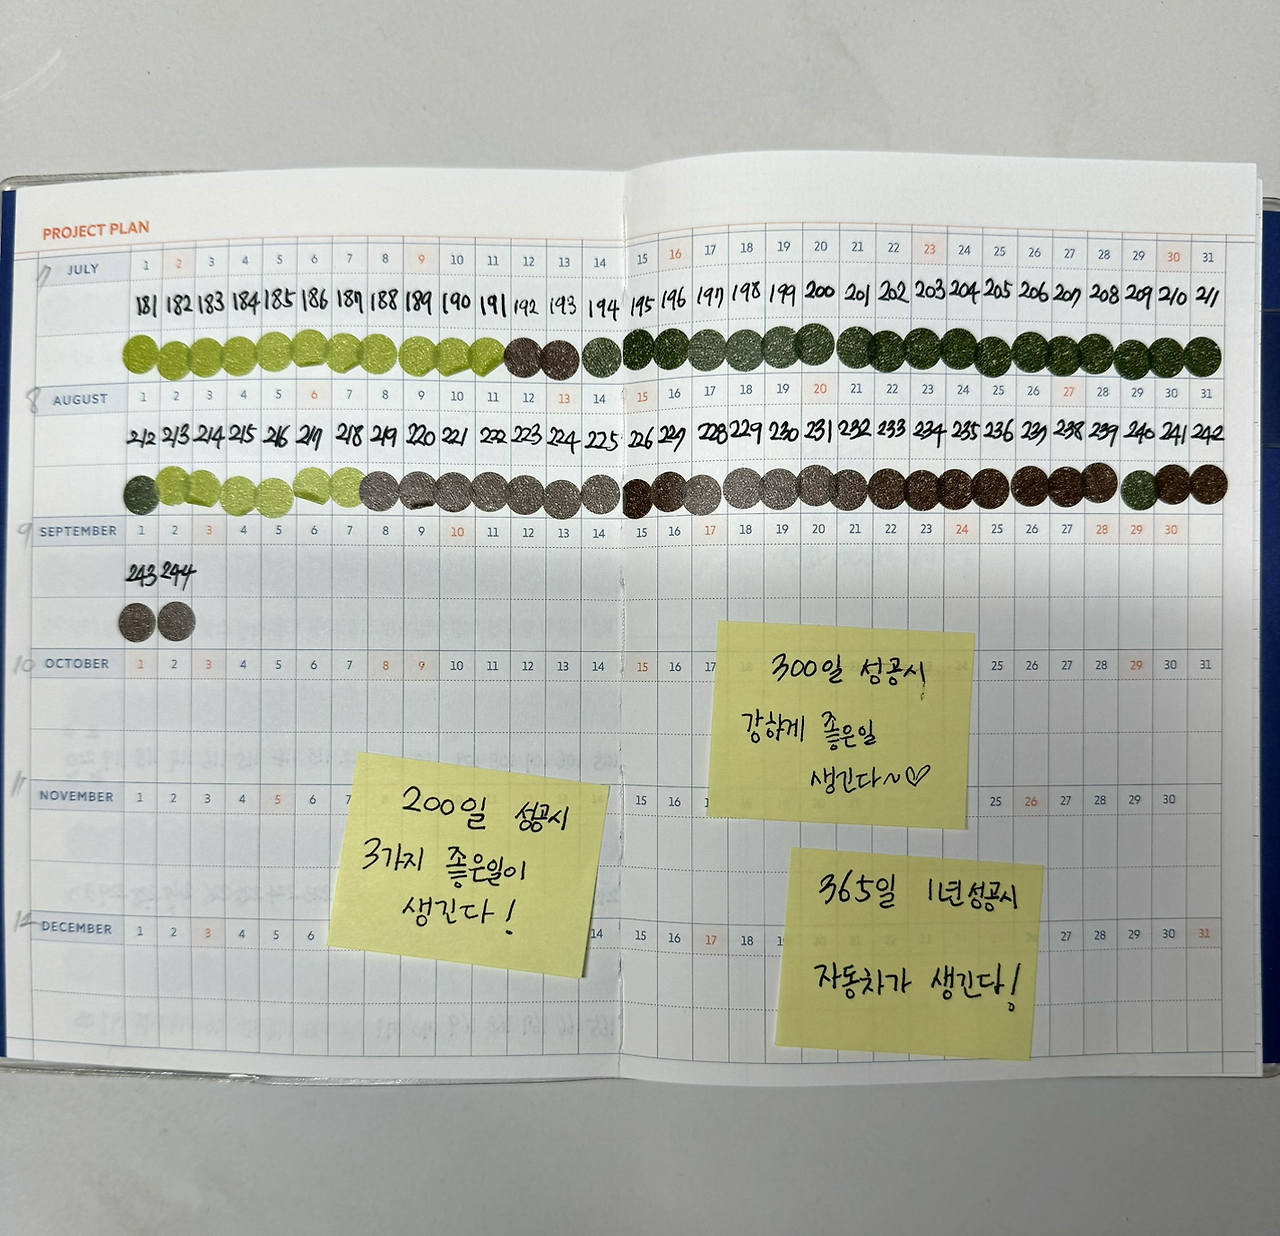 PROJECT PLAN
7 JULY 1 2 3 4 5 6 7 8 9 10 11 12 13 14 15 16 17 18 19 20 21 22 23 24 25 26 27 28 29 30 31
181 182 183 184 185 186 187 188 189 190 191 192 193 194 195 196 197 198 199 200 201 202 203 204 205 206 207 208 209 210 211
8 AUGUST 1 2 3 4 5 6 7 8 9 10 11 12 13 14 15 16 17 18 19 20 21 22 23 24 25 26 27 28 29 30 31
212 213 214 215 216 217 218 219 220 221 222 223 224 225 226 227 228 229 230 231 232 233 234 235 236 237 238 239 240 241 242
9 SEPTEMBER 1 2 3 4 5 6 7 8 9 10 11 12 13 14 15 16 17 18 19 20 21 22 23 24 25 26 27 28 29 30
243 244
10 OCTOBER 1 2 3 4 5 6 7 8 9 10 11 12 13 14 15 16 17 25 26 27 28 29 30 31
300일 성공시
강하게 좋은일
생긴다~♡
11 NOVEMBER 1 2 3 4 5 6 7 15 16 25 26 27 28 29 30
200일 성공시
3가지 좋은일이
생긴다!
365일 1년성공시
자동차가 생긴다!
12 DECEMBER 1 2 3 4 5 6 14 15 16 17 18 27 28 29 30 31